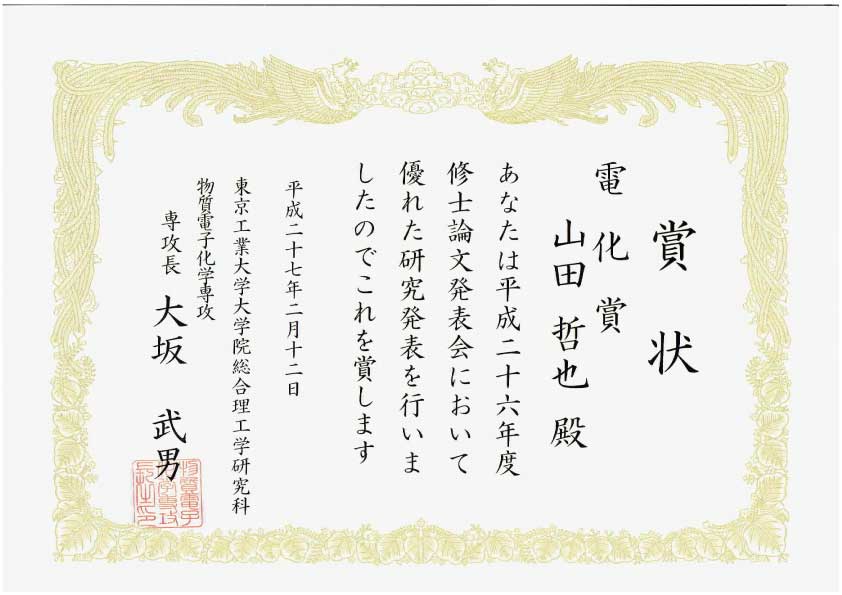 賞状
電化賞
山田哲也殿
あなたは平成二十六年度
修士論文発表会において
優れた研究発表を行いま
したのでこれを賞します
平成二十七年二月十二日
東京工業大学大学院総合理工学研究科
物質電子化学専攻
専攻長 大坂 武男